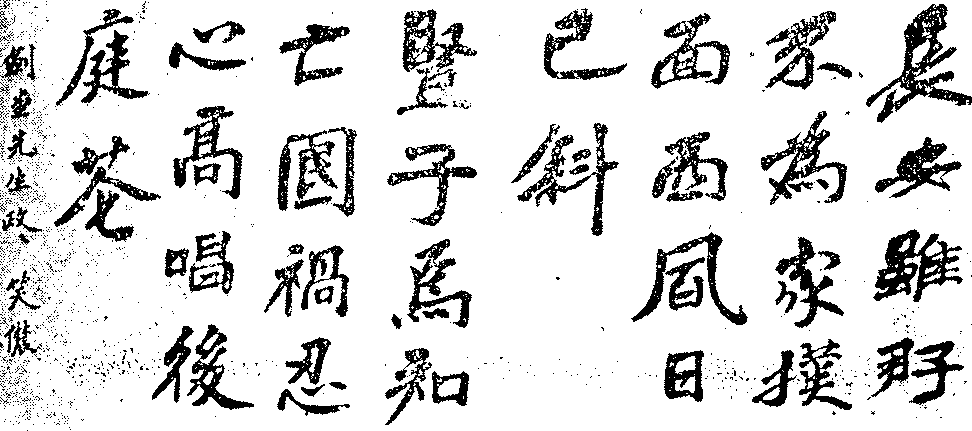 長安雖好
不為家撲
面西風日
已斜
豎子焉知
亡國禍忍
心高唱後
庭花
先生政 笑儂